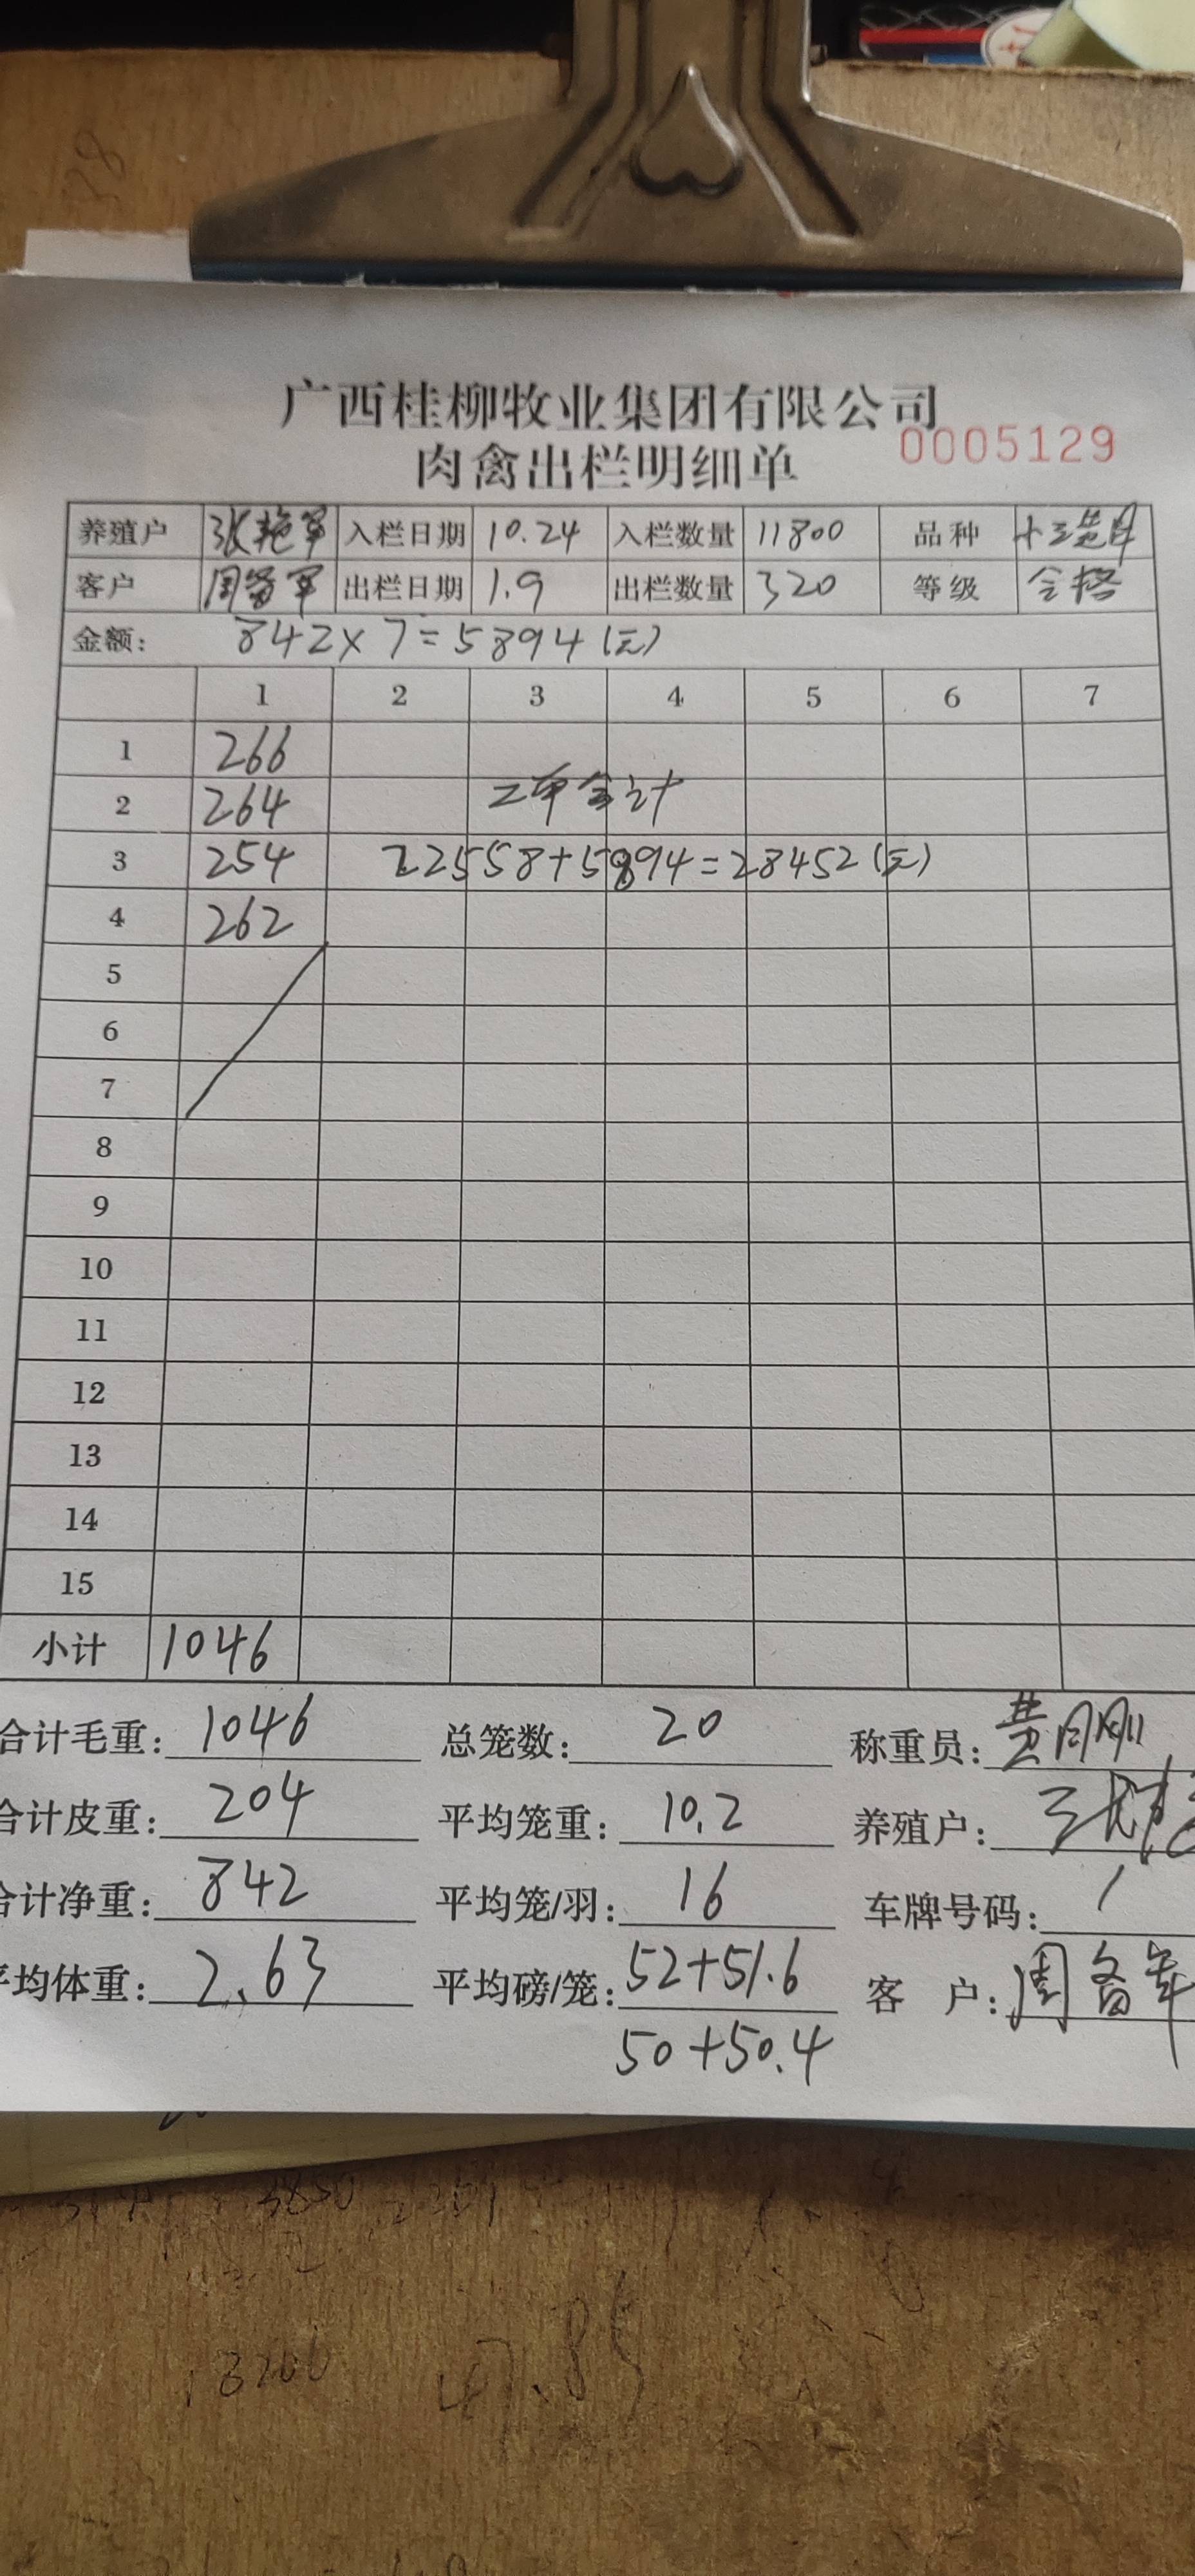 广西桂柳牧业集团有限公司
肉禽出栏明细单 0005129
养殖户 张艳军 入栏日期 10.24 入栏数量 11800 品种
客户 周备军 出栏日期 1.9 出栏数量 320 等级 合格
金额: 842×7=5894(元)
1 2 3 4 5 6 7
1 266
2 264 二单合计
3 254 22558+5894=28452(元)
4 262
5
6
7
8
9
10
11
12
13
14
15
小计 1046
合计毛重: 1046 总笼数: 20 称重员: 黄刚
合计皮重: 204 平均笼重: 10.2 养殖户:
合计净重: 842 平均笼/羽: 16 车牌号码: /
平均体重: 2.63 平均磅/笼: 52+51.6 客户: 周备军
50+50.4
3850
18200
47.85